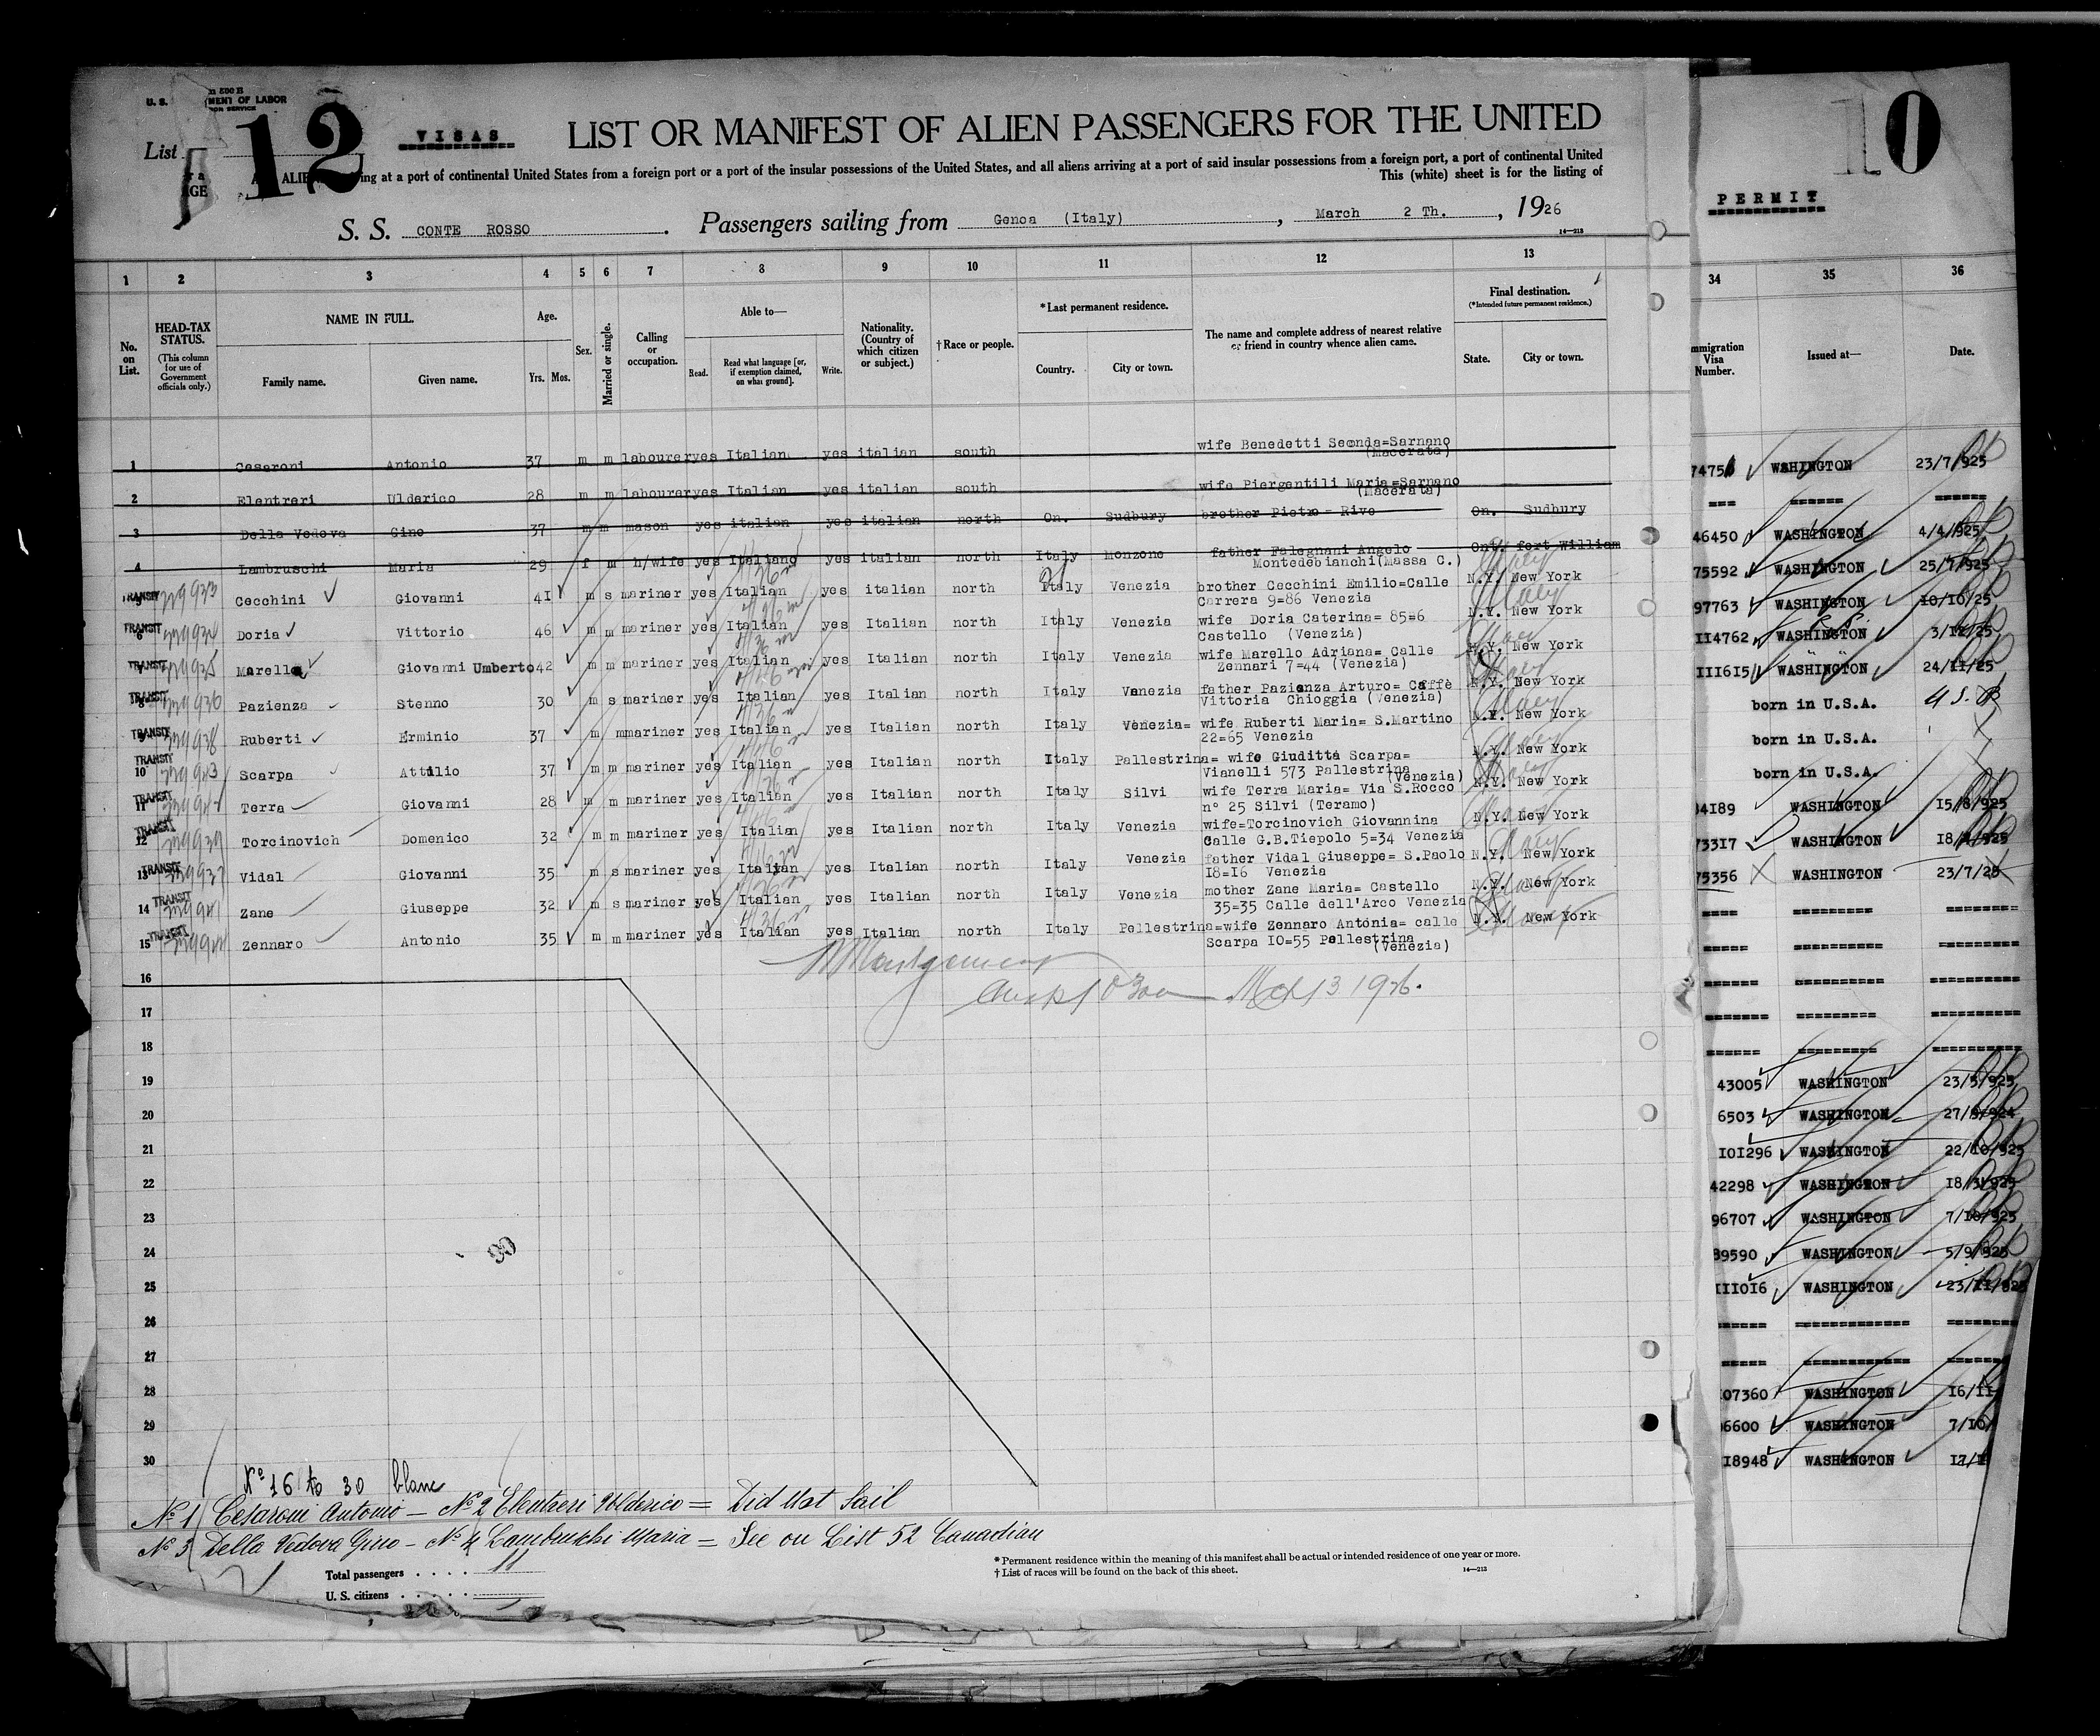 U. S.
MENT OF LABOR
List
12
VISAS
LIST OR MANIFEST OF ALIEN PASSENGERS FOR THE UNITED
ing at a port of continental United States from a foreign port or a port of the insular possessions of the United States, and all aliens arriving at a port of said insular possessions from a foreign port, a port of continental United
This (white) sheet is for the listing of
S. S. CONTE ROSSO. Passengers sailing from Genoa (Italy), March 2 Th., 1926
14—213
1 2 3 4 5 6 7 8 9 10 11 12 13
No. on List.
HEAD-TAX STATUS.
(This column for use of Government officials only.)
NAME IN FULL.
Family name.
Given name.
Age.
Yrs. Mos.
Sex.
Married or single.
Calling or occupation.
Able to—
Read.
Read what language [or, if exemption claimed, on what ground].
Write.
Nationality. (Country of which citizen or subject.)
†Race or people.
*Last permanent residence.
Country.
City or town.
The name and complete address of nearest relative or friend in country whence alien came.
Final destination.
(*Intended future permanent residence.)
State.
City or town.
1 Ceseroni Antonio 37 m m labourer yes Italian yes italian south wife Benedetti Seonda=Sarnano
(Macerata)
2 Elentreri Ulderico 28 m m labourer yes Italian yes italian south wife Piergentili Maria=Sarnano
(Macerata)
3 Della Vedova Gino 37 m m mason yes italian yes italian north On. Sudbury brother Pietro - Rivo On. Sudbury
4 Lambruschi Maria 29 f m h/wife yes Italiano yes italian north Italy Monzone father Falegnani Angelo Ont. fort William
Montedebianchi(Massa C.)
TRANSIT 5 Cecchini Giovanni 41 m s mariner yes Italian yes italian north Italy Venezia brother Cecchini Emilio=Calle N.Y. New York
Carrera 9=86 Venezia
TRANSIT 6 Doria Vittorio 46 m m mariner yes Italian yes Italian north Italy Venezia wife Doria Caterina= 85=6 N.Y. New York
Castello (Venezia)
TRANSIT 7 Marello Giovanni Umberto 42 m m mariner yes Italian yes Italian north Italy Venezia wife Marello Adriana= Calle N.Y. New York
Zennari 7=44 (Venezia)
TRANSIT 8 Pazienza Stenno 30 m s mariner yes Italian yes Italian north Italy Venezia father Pazienza Arturo= Caffè N.Y. New York
Vittoria Chioggia (Venezia)
TRANSIT 9 Ruberti Erminio 37 m m mariner yes Italian yes Italian north Italy Venezia= wife Ruberti Maria= S.Martino N.Y. New York
22=65 Venezia
TRANSIT 10 Scarpa Attilio 37 m m mariner yes Italian yes Italian north Italy Pallestrina= wife Giuditta Scarpa= N.Y. New York
Vianelli 573 Pallestrina (Venezia)
TRANSIT 11 Terra Giovanni 28 m m mariner yes Italian yes Italian north Italy Silvi wife Terra Maria= Via S.Rocco N.Y. New York
n° 25 Silvi (Teramo)
TRANSIT 12 Torcinovich Domenico 32 m m mariner yes Italian yes Italian north Italy Venezia wife=Torcinovich Giovannina N.Y. New York
Calle G.B.Tiepolo 5=34 Venezia
TRANSIT 13 Vidal Giovanni 35 m s mariner yes Italian yes Italian north Italy Venezia father Vidal Giuseppe= S.Paolo N.Y. New York
18=16 Venezia
TRANSIT 14 Zane Giuseppe 32 m s mariner yes Italian yes Italian north Italy Venezia mother Zane Maria= Castello N.Y. New York
35=35 Calle dell'Arco Venezia
TRANSIT 15 Zennaro Antonio 35 m m mariner yes Italian yes Italian north Italy Pellestrina=wife Zennaro Antonia= calle N.Y. New York
Scarpa 10=55 Pellestrina (Venezia)
16
17
18
19
20
21
22
23
24
25
26
27
28
29
30
No 16 to 30 blanc
No 1 Cesaroni Antonio — No 2 Elentreri Ulderico = Did Not Sail
No 3 Della Vedova Gino - No 4 Lambruschi Maria = See on List 52 Canadian
Total passengers . . . . 11
U. S. citizens . . . . .
* Permanent residence within the meaning of this manifest shall be actual or intended residence of one year or more.
† List of races will be found on the back of this sheet.
14—213
10
PERMIT
34 35 36
mmigration Visa Number.
Issued at—
Date.
WASHINGTON 23/7/925
46450 WASHINGTON 4/4/925
75592 WASHINGTON 25/7/925
97763 WASHINGTON 10/10/25
114762 WASHINGTON 3/12/25
111615 WASHINGTON 24/11/25
born in U.S.A.
born in U.S.A.
born in U.S.A.
34189 WASHINGTON 15/8/925
73317 WASHINGTON
75356 WASHINGTON 23/7/25
43005 WASHINGTON 23/5/925
6503 WASHINGTON 27/9/924
101296 WASHINGTON 22/10/925
42298 WASHINGTON 18/3/925
96707 WASHINGTON 7/10/925
39590 WASHINGTON 5/9/925
111016 WASHINGTON 23/11/925
07360 WASHINGTON 16/11
6600 WASHINGTON 7/10/
18948 WASHINGTON